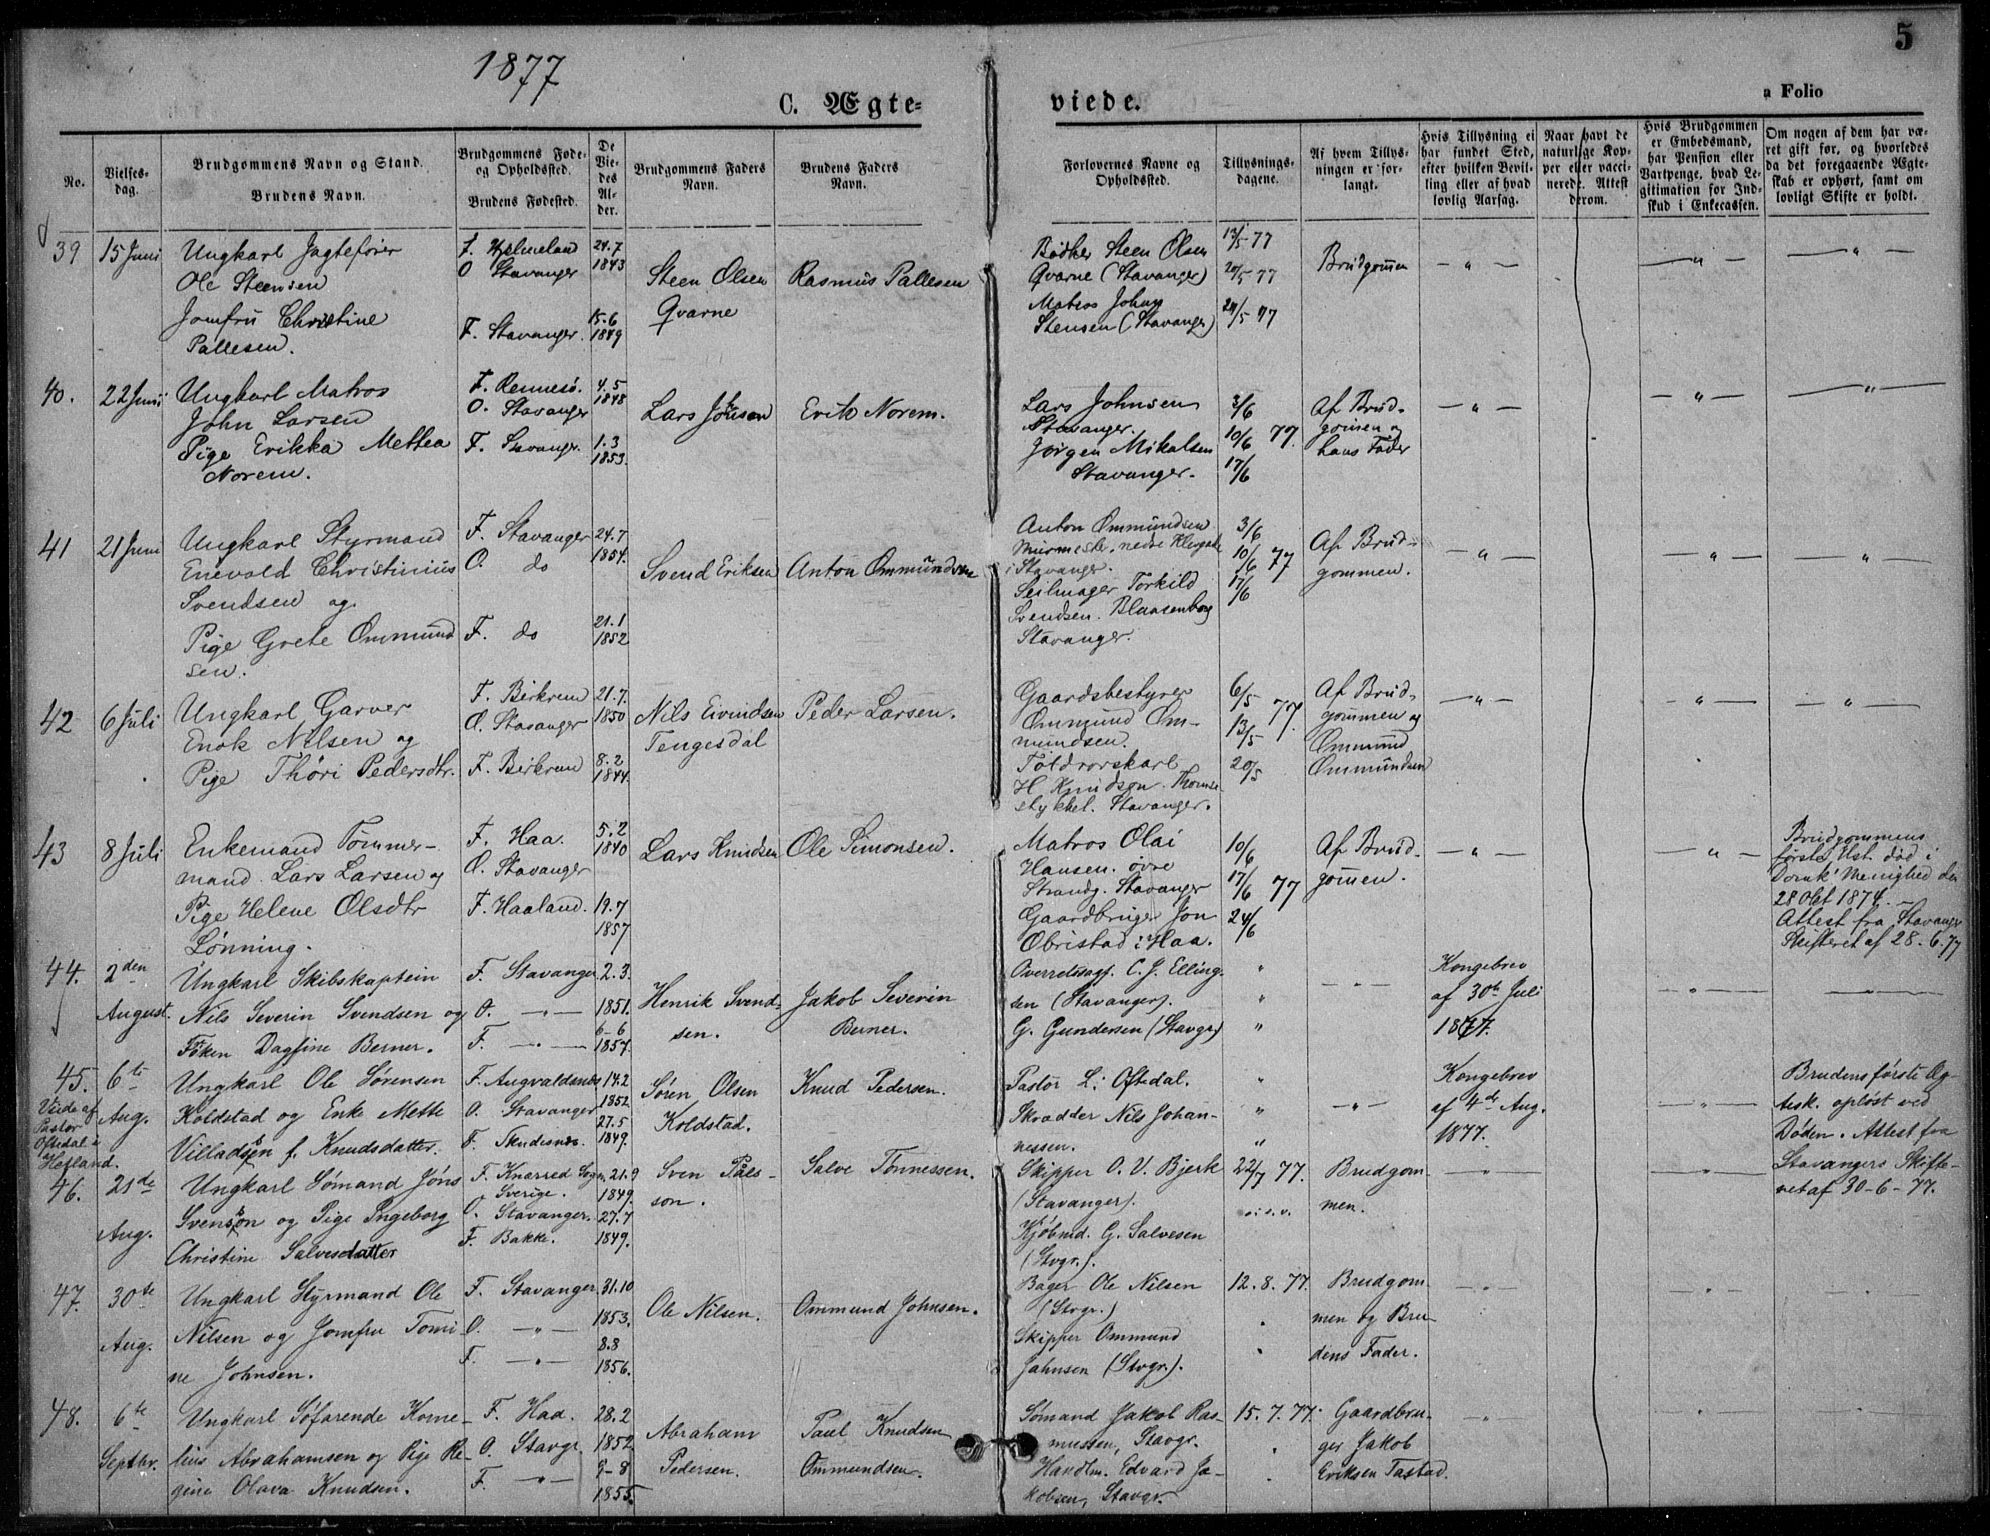 5
1877
C. Ægte-
viede.
a Folio
No.
Vielses-
dag.
Brudgommens Navn og Stand.
Brudens Navn.
Brudgommens Føde-
og Opholdssted.
Brudens Fødested.
De
Vie-
des
Al-
der.
Brudgommens Faders
Navn.
Brudens Faders
Navn.
Forlovernes Navne og
Opholdssted.
Tillysnings-
dagene.
Af hvem Tillys-
ningen er for-
langt.
Hvis Tillysning ei
har fundet Sted,
efter hvilken Bevil-
ling eller af hvad
lovlig Aarsag.
Naar havt de
naturlige Kop-
per eller vacci-
nerede. Attest
derom.
Hvis Brudgommen
er Embedsmand,
har Pension eller
Vartpenge, hvad Le-
gitimation for Ind-
skud i Enkecassen.
Om nogen af dem har væ-
ret gift før, og hvorledes
da det foregaaende Ægte-
skab er ophørt, samt om
lovligt Skifte er holdt.
39
15 Juni
Ungkarl Jagtefører
Ole Steensen
Jomfru Christine
Pallesen.
F. Hjelmeland
O Stavanger
F. Stavanger.
24.7
1843
15.6
1849
Steen Olsen
Qvarne
Rasmus Pallesen
Bødker Steen Olsen
Qvarne (Stavanger)
Matros Johny
Stensen (Stavanger)
13/5 77
20/5 77
24/5 77
Brudgomen
40.
22 Juni
Ungkarl Matros
John Larsen
Pige Erikka Mettea
Norem.
F. Rennesø.
O. Stavanger
F. Stavanger.
4.5
1848
1.3
1853.
Lars Johnsen
Erik Norem.
Lars Johnsen
Stavanger.
Jørgen Mikalsen
Stavanger.
3/6
10/6 77.
17/6
Af Brud-
gomen og
hans Fader
41
21 Juni
Ungkarl Styrmand
Enevold Christinius
Svendsen og
Pige Grete Ommund
sen.
F. Stavanger
O. do
F. do
24.7
1854.
21.1
1852
Svend Eriksen
Anton Ommundsen
Anton Ommundsen
Murmester. nedre
i Stavanger.
Seilmager Torkild
Svendsen. Blaasenborg
Stavanger.
3/6
10/6 77
17/6
Af Brud-
gommen.
42
6 Juli
Ungkarl Garver
Enok Nilsen og
Pige Thøri Pedersdtr.
F. Birkrem
O. Stavanger
F. Birkrem
21.7.
1850
8.2
1844.
Nils Eivindsen
Tengesdal
Peder Larsen.
Gaardsbestyrer
Ommund Om-
mundsen.
Toldrorskarl
H Knudsen.
stykket. Stavanger.
6/5
13/5 77.
20/5
Af Brud-
gommen og
Ommund
Ommundsen
43
8 Juli
Enkemand Tømmer-
mand. Lars Larsen og
Pige Helene Olsdtr
Lønning.
F. Haa.
O. Stavanger
F. Haaland.
5.2
1840
19.7
1857
Lars Knudsen
Ole Simonsen.
Matros Olai
Hansen. øvre
Strandg. Stavanger
Gaardbruger Jon
Obristad i Haa.
10/6
17/6 77
24/6
Af Brud-
gomen.
Brudgommens
første Hst. død i
Domk' Menighed den
28 Okt 1874. –
Attest fra Stavanger
Skifteret af 28.6.77
44.
2den
August.
Ungkarl Skibskaptein
Nils Severin Svendsen og
Frøken Dagfine Berner.
F. Stavanger
O. –"–
F. –"–
2.3.
1851.
6-6
1857.
Henrik Svend-
sen.
Jakob Severin
Berner.
Overretssagf. C. J. Elling-
sen (Stavanger).
G. Gundersen (Stavgr)
Kongebrev
af 30te Juli
1877.
45.
6te
Aug.
Viede af
Pastor
Oftedal i
Hetland.
Ungkarl Ole Sørensen
Koldstad og Enke Mette
Villadsen f. Knudsdatter.
F. Augvaldsnes
O. Stavanger
F. Skudesnes.
14.2
1852.
27.5
1849.
Søren Olsen
Koldstad.
Knud Pedersen.
Pastor L: Oftedal.
Skradder Nils Johan-
nessen.
Kongebrev
af 4de Aug.
1877.
Brudens første Æg-
tesk. opløst ved
Døden. Attest fra
Stavangers Skifte-
ret af 30-6-77.
46.
21de
Aug.
Ungkarl Sømand Jøns
Svenson og Pige Ingeborg
Christine Salvesdatter
F. Knærred Sogn,
Sverige.
O. Stavanger.
F. Bakke.
21.9
1849
27.7
1849.
Sven Påls-
son.
Salve Tønnessen.
Skipper O. V. Bjerk
(Stavanger).
Kjøbmd. G. Salvesen
(Stvgr.).
22/7 77.
o.s.v.
Brudgom-
men.
47.
30te
Aug.
Ungkarl Styrmand Ole
Nilsen og Jomfru Tomi-
ne Johnsen.
F. Stavanger.
O. –"–
F. –"–
31.10
1853.
8.8
1856.
Ole Nilsen.
Ommund Johnsen.
Bager Ole Nilsen
(Stvgr.)
Skipper Ommund
Jahnsen (Stvgr).
12.8.77.
Brudgom-
men og Bru-
dens Fader.
48.
6te
Septbr.
Ungkarl Søfarende Korne-
lius Abrahamsen og Pige Re-
gine Olava Knudsen.
F. Haa.
O. Stavgr.
F. –"–
28.2
1852
9-8
1855.
Abraham
Pedersen.
Paul Knudsen
Ommundsen.
Sømand Jakob Ras-
mussen, Stavgr.
Handlm. Edvard Ja-
kobsen, Stavgr.
15.7.77.
Gaardbru-
ger Jakob
Eriksen Tastad.